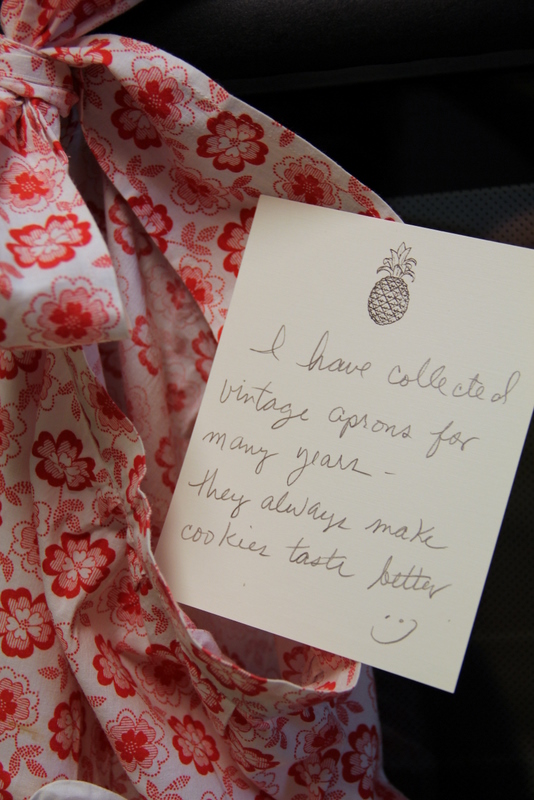 I have collected
vintage aprons for
many years -
they always make
cookies taste better